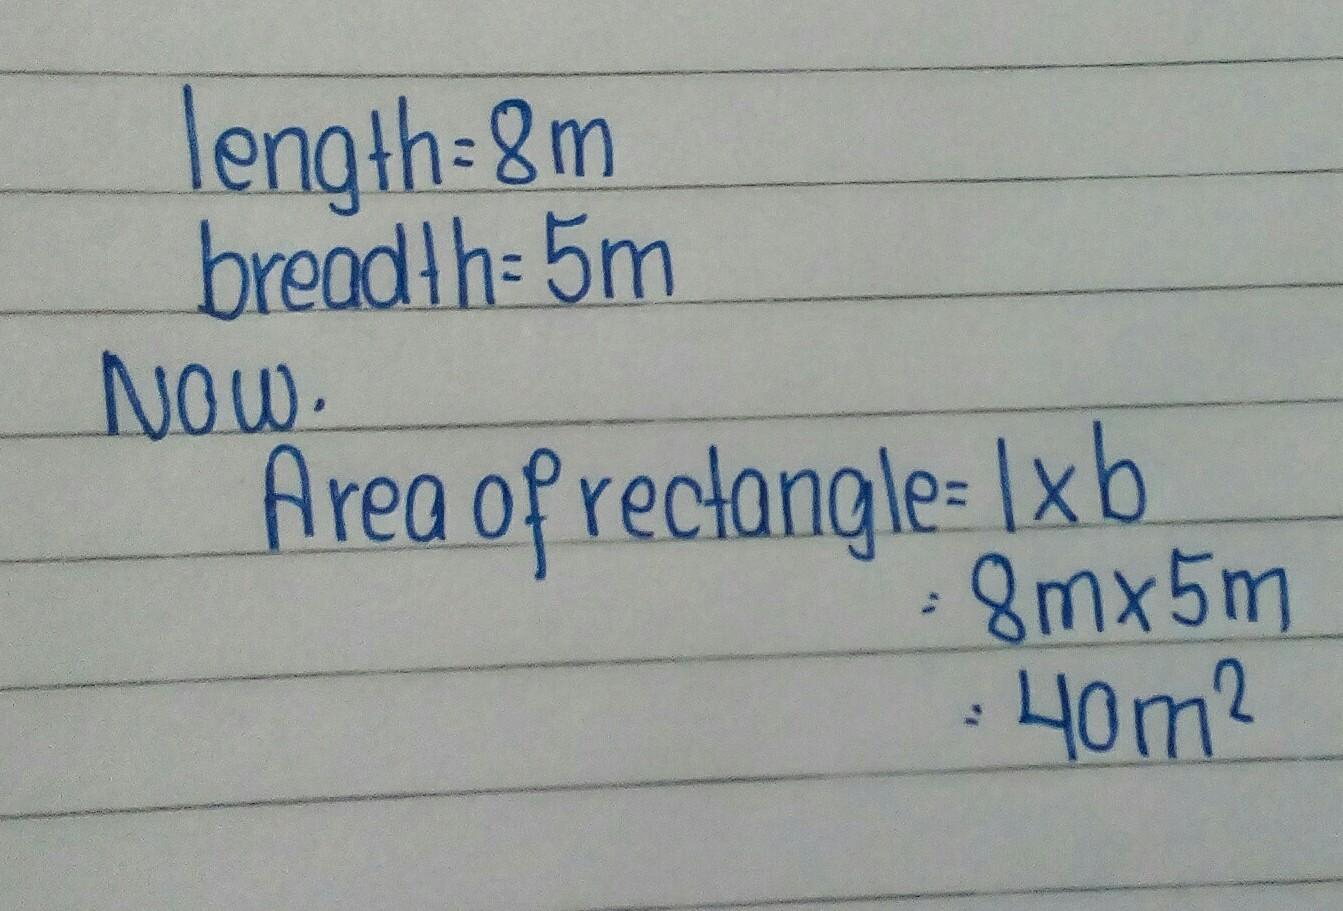 length=8m
breadth=5m
Now.
Area of rectangle=l×b
=8m×5m
=40m²